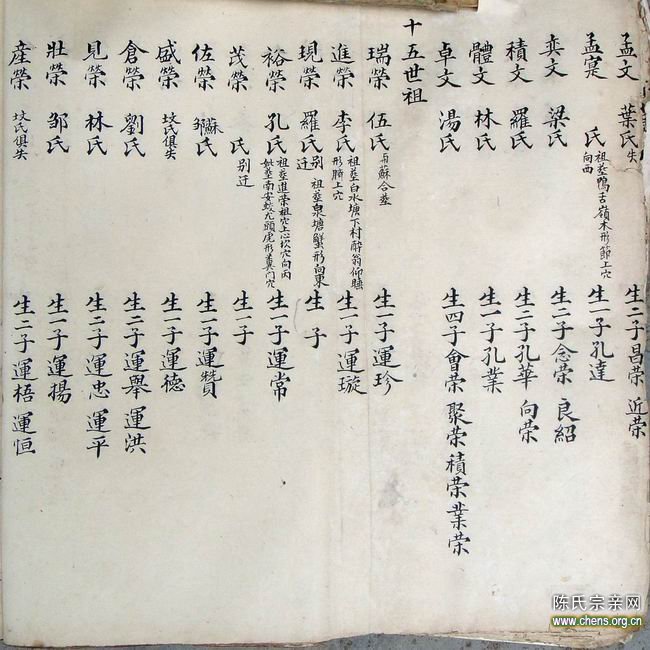 孟文 葉氏失 生二子昌荣 近荣
孟寔 氏 祖墓鴨舌嶺木形節上穴向西 生一子孔達
奕文 梁氏 生二子念荣 良紹
積文 羅氏 生二子孔華 向荣
體文 林氏 生一子孔業
卓文 湯氏 生四子會荣 聚荣 積荣 業荣
十五世祖
瑞榮 伍氏 蘇合墓 生一子運珍
進榮 李氏 祖墓白水塘下村醉翁仰睡形臍上穴 生一子運璇
現榮 羅氏 别迁 祖墓泉塘蟹形向東 生 子
裕榮 孔氏 祖墓進荣祖穴上心坎穴向丙 妣墓南安蛟尤頭虎形糞門穴 生一子運常
茂榮 氏 别迁 生一子
佐榮 蘇鄒氏 生一子運贊
盛榮 坟氏俱失 生一子運德
倉榮 劉氏 生二子運舉 運洪
見榮 林氏 生二子運忠 運平
壯榮 邹氏 生一子運揚
産榮 坟氏俱失 生二子運梧 運恒
陈氏宗亲网
www.chens.org.cn